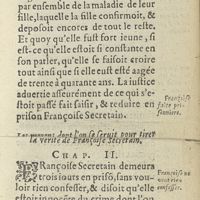 par ensemble de la maladie de leur
fille, laquelle la fille confirmoit, &
deposoit encores de tout le reste.
Et quoy qu'elle fust fort ieune, si
est-ce qu'elle estoit si constante en
son parler, qu'elle se faisoit croire
tout ainsi que si elle eust esté aagée
de trente à quarante ans. La iustice
aduertie asseurément de ce qui s'e-
stoit passé fait saisir, & reduire en
prison Françoise Secretain.
Françoise
faite pri-
sonniere.
dont l'on se seruit pour tirer
la verité de Françoise Secretain.
CHAP. II.
FRançoise Secretain demeura
trois iours en prisõ, sans vou-
loir rien confesser, & disoit qu'elle
estoit innocẽte du crime dont l'on
Françoise ne
veut rien
confesser.